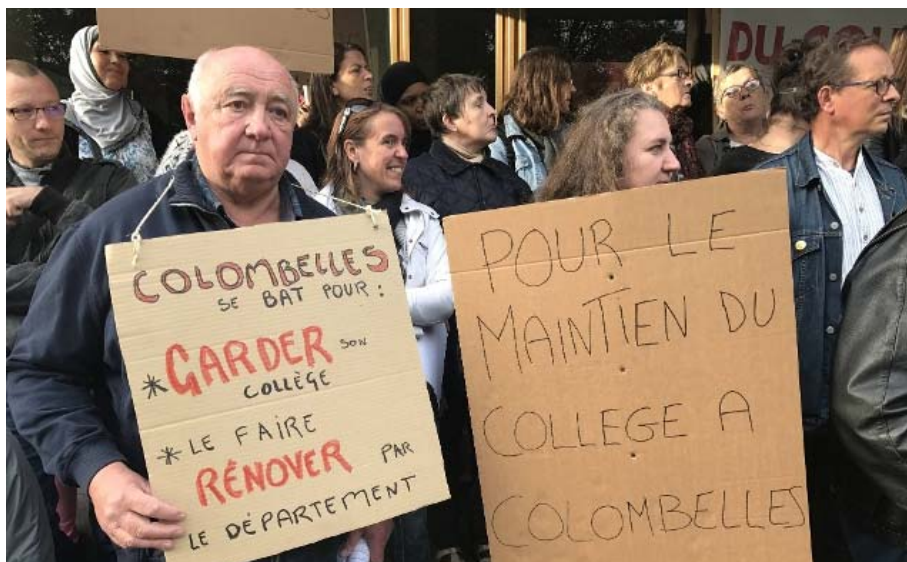 DU COL
COLOMBELLES
SE BAT POUR :
* GARDER SON
COLLÈGE
* LE FAIRE
RÉNOVER PAR
LE DÉPARTEMENT
POUR LE
MAINTIEN DU
COLLEGE A
COLOMBELLES